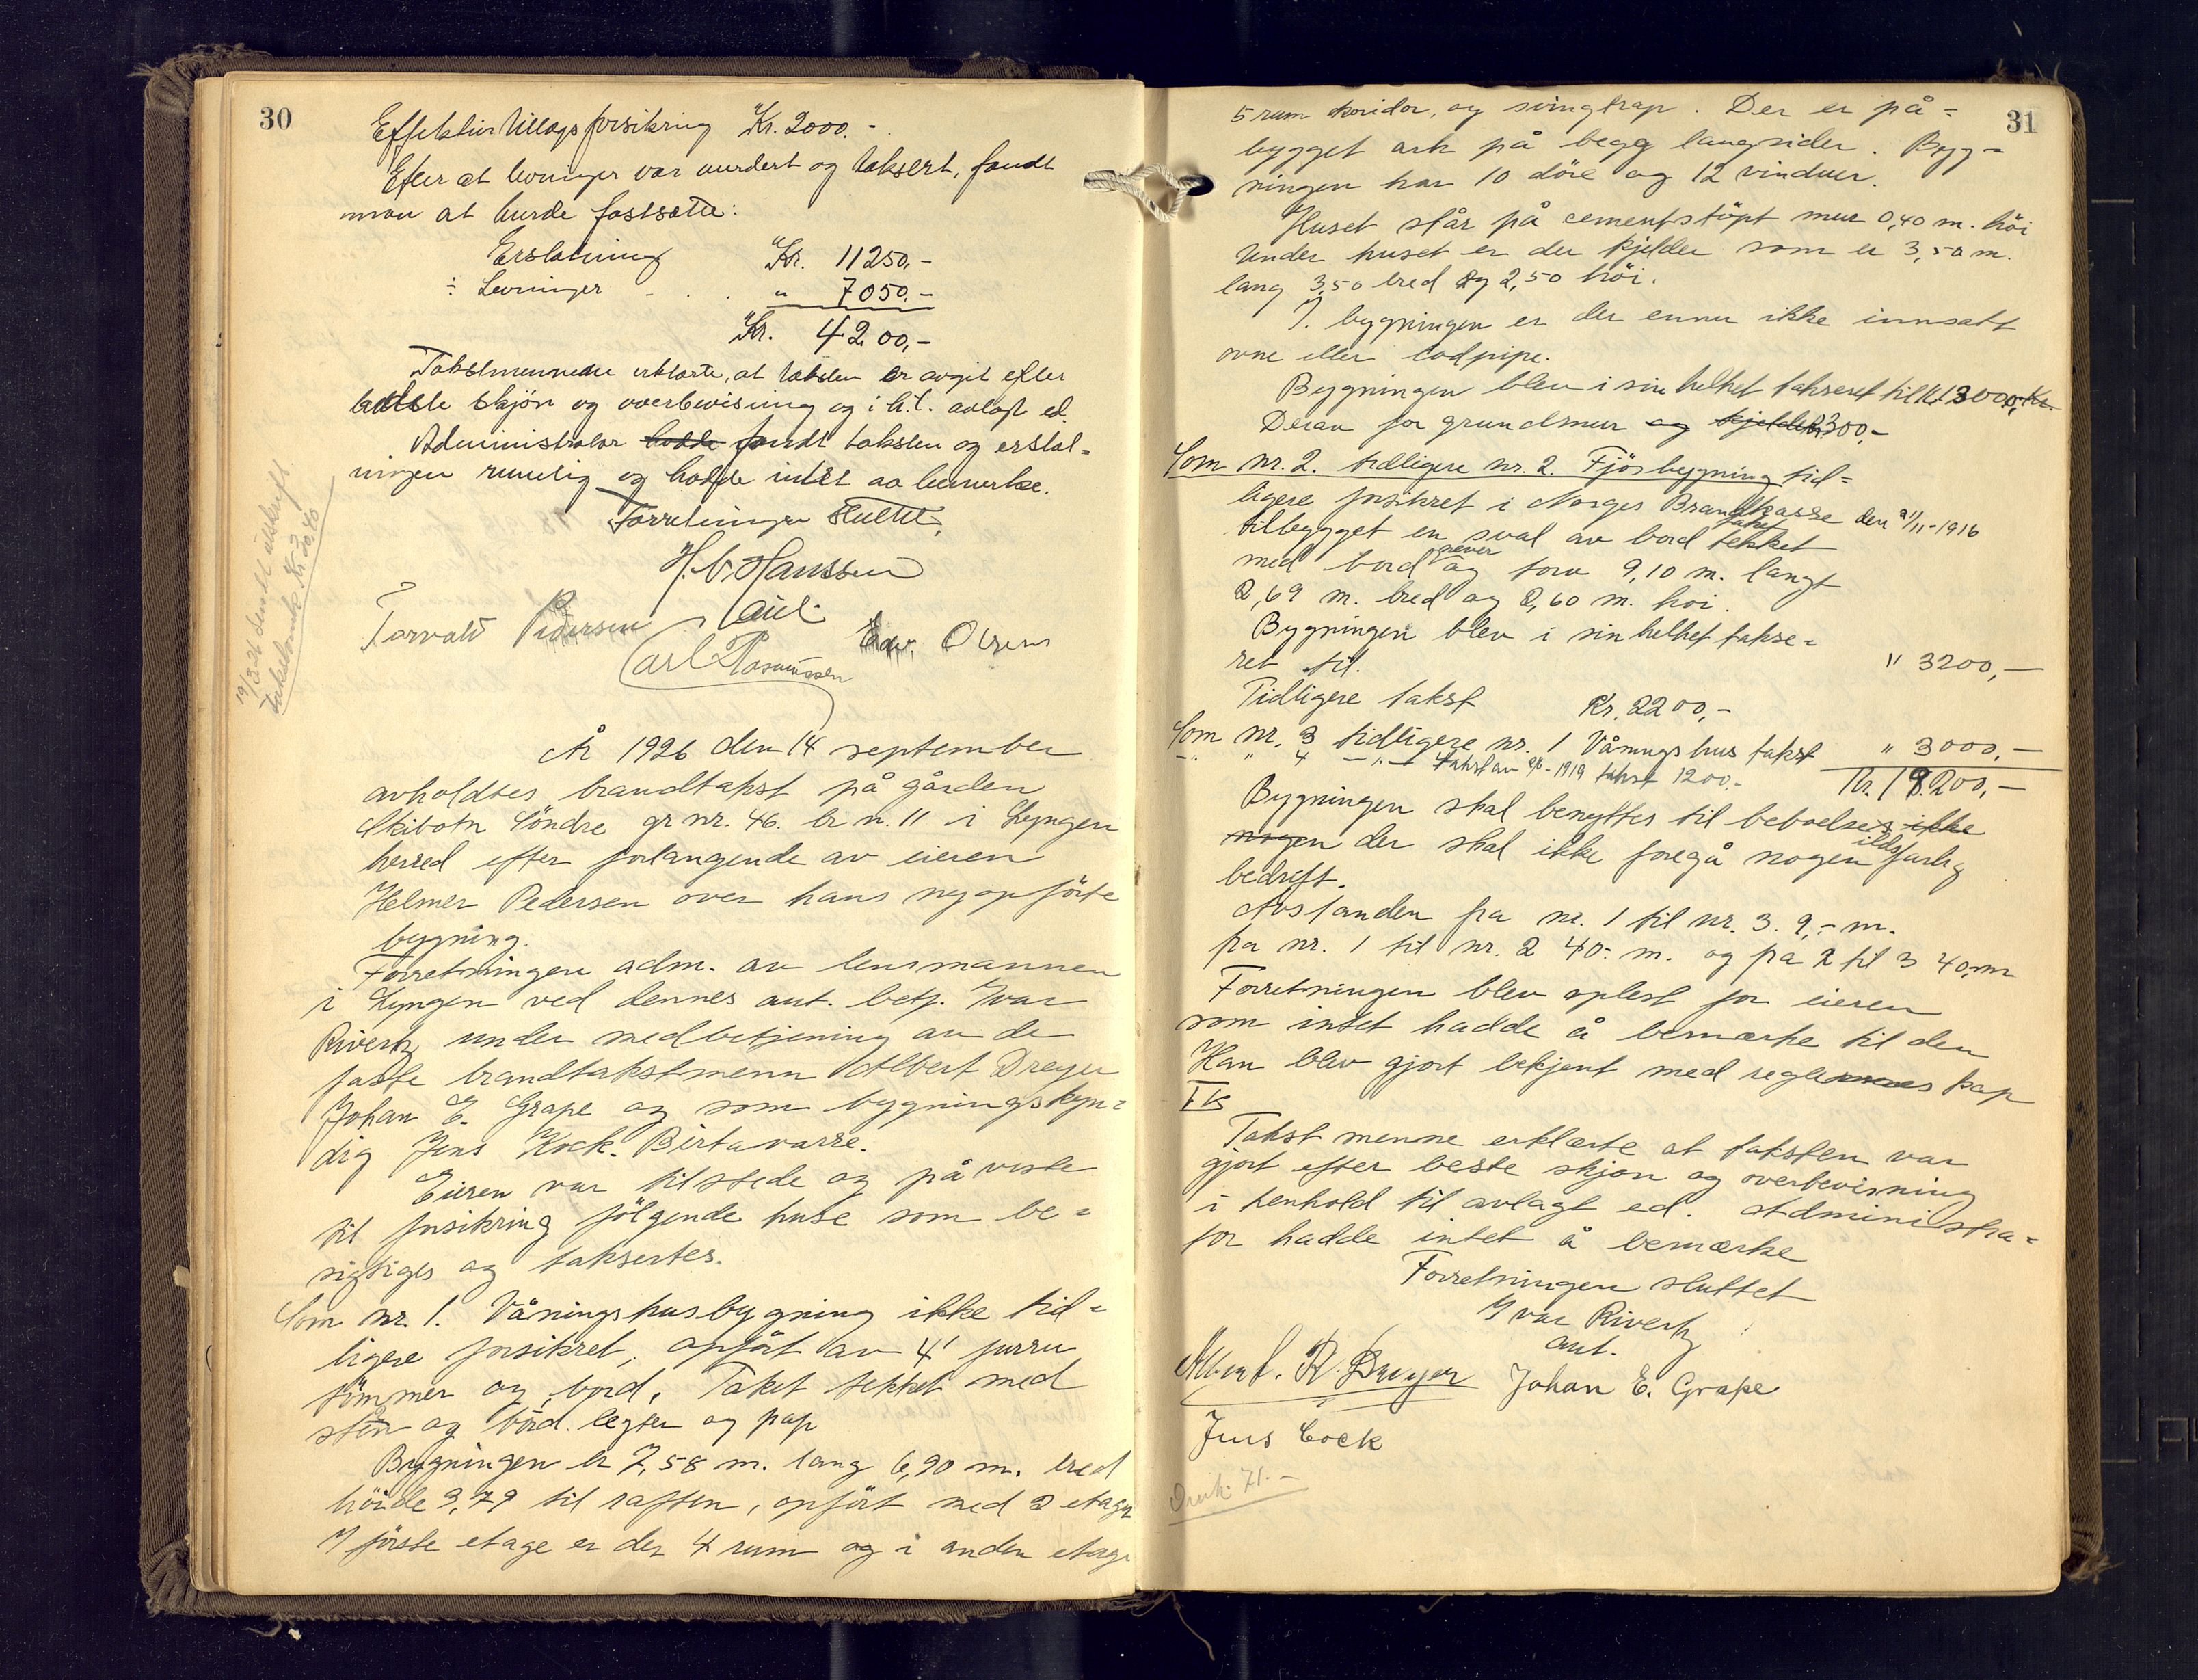 30
Effektiv tillægsforsikring Kr. 2000.-
Efter at levninger var vurdert og taksert, fandt
man at burde fastsætte:
Erstatning Kr. 11250,-
÷ Levninger - . . " 7050.-
Kr. 4200,-
Takstmennene erklærte, at taksten er avgit efter
bedste skjön og overbevisning og i h.t. avlagt ed.
Administrator hadde fandt taksten og erstat=
ningen rimelig og hadde intet aa bemerke.
Forretningen sluttet.
H. Hanssen
Torvald Pedersen
Carl Rasmussen
Edv. Olsen
19/3 26 sendt utskrift
År 1926 den 14 september
avholdtes brandtakst på gården
Skibotn Söndre gr nr. 46. br n. 11 i Lyngen
herred efter forlangende av eieren
Helmer Pedersen over hans nyopförte
bygning.
Forretningen adm. av lensmannen
i Lyngen ved dennes aut. betj. Ivar
Rivertz under medbetjening av de
faste brandtakstmenn Albert Dreyer
Johan E. Grape og som bygningskyn=
dig Jens Kock. Birtavarre.
Eieren var tilstede og påviste
til forsikring fölgende huse som be=
sigtiges og taksertes.
Som nr. 1. Våningshusbygning ikke tid=
ligere forsikret, opfört av 4" furru
tömmer og bord. Taket tekket med
sten og bord. legter og pap
Bygningen er 7,58 m. lang 6,90 m. bred
höide 3,79 til raften, opfört med 2 etager
I förste etage er der 4 rum og i anden etage
31
5 rum koridor, og svingtrap. Der er på=
bygget ark på begg langsider. Byg=
ningen har 10 döre og 12 vinduer.
Huset står på cementstöpt mur 0,40 m. höi
Under huset er der kjelder som er 3,50 m.
lang 3,50 bred og 2,50 höi.
I. bygningen er der ennu ikke innsatt
ovne eller lodpipe.
Bygningen blev i sin helhet takseret til Kr. 13000,- Kr.
Derav for grundmur og kjelder 2300,-
Som nr. 2. tidligere nr. 2. Fjösbygning tid=
ligere forsikret i Norges Brandkasse den 21/11-1916
tilbygget en sval av bord taket tekket
med bord never og torv 9,10 m. langt
2,69 m. bred og 2,60 m. höi.
Bygningen blev i sin helhet takse=
ret til. " 3200,-
Tidligere takst Kr. 2200,-
Som nr. 3 tidligere nr. 1 Våningshus takst " 3000,-
-"- " 4 -"- takst av 9/6-1919 takst 1200.- Kr. 19200,-
Bygningen skal benyttes til beboelse, ikke
nogen der skal ikke foregå nogen ildsfarlig
bedrift.
Avstanden fra nr. 1 til nr. 3. 9,- m.
fra nr. 1 til nr. 2 40.- m. og fra 2 til 3 40,m
Forretningen blev oplest for eieren
som intet hadde å bemærke til den
Han blev gjort bekjent med reglernes kap
IV
Takst menne erklærte at taksten var
gjort efter beste skjön og overbevisning
i henhold til avlagt ed. Administra=
tor hadde intet å bemærke
Forretningen sluttet
Ivar Rivertz
aut.
Albert. R. Dreyer Johan E. Grape
Jens Cock